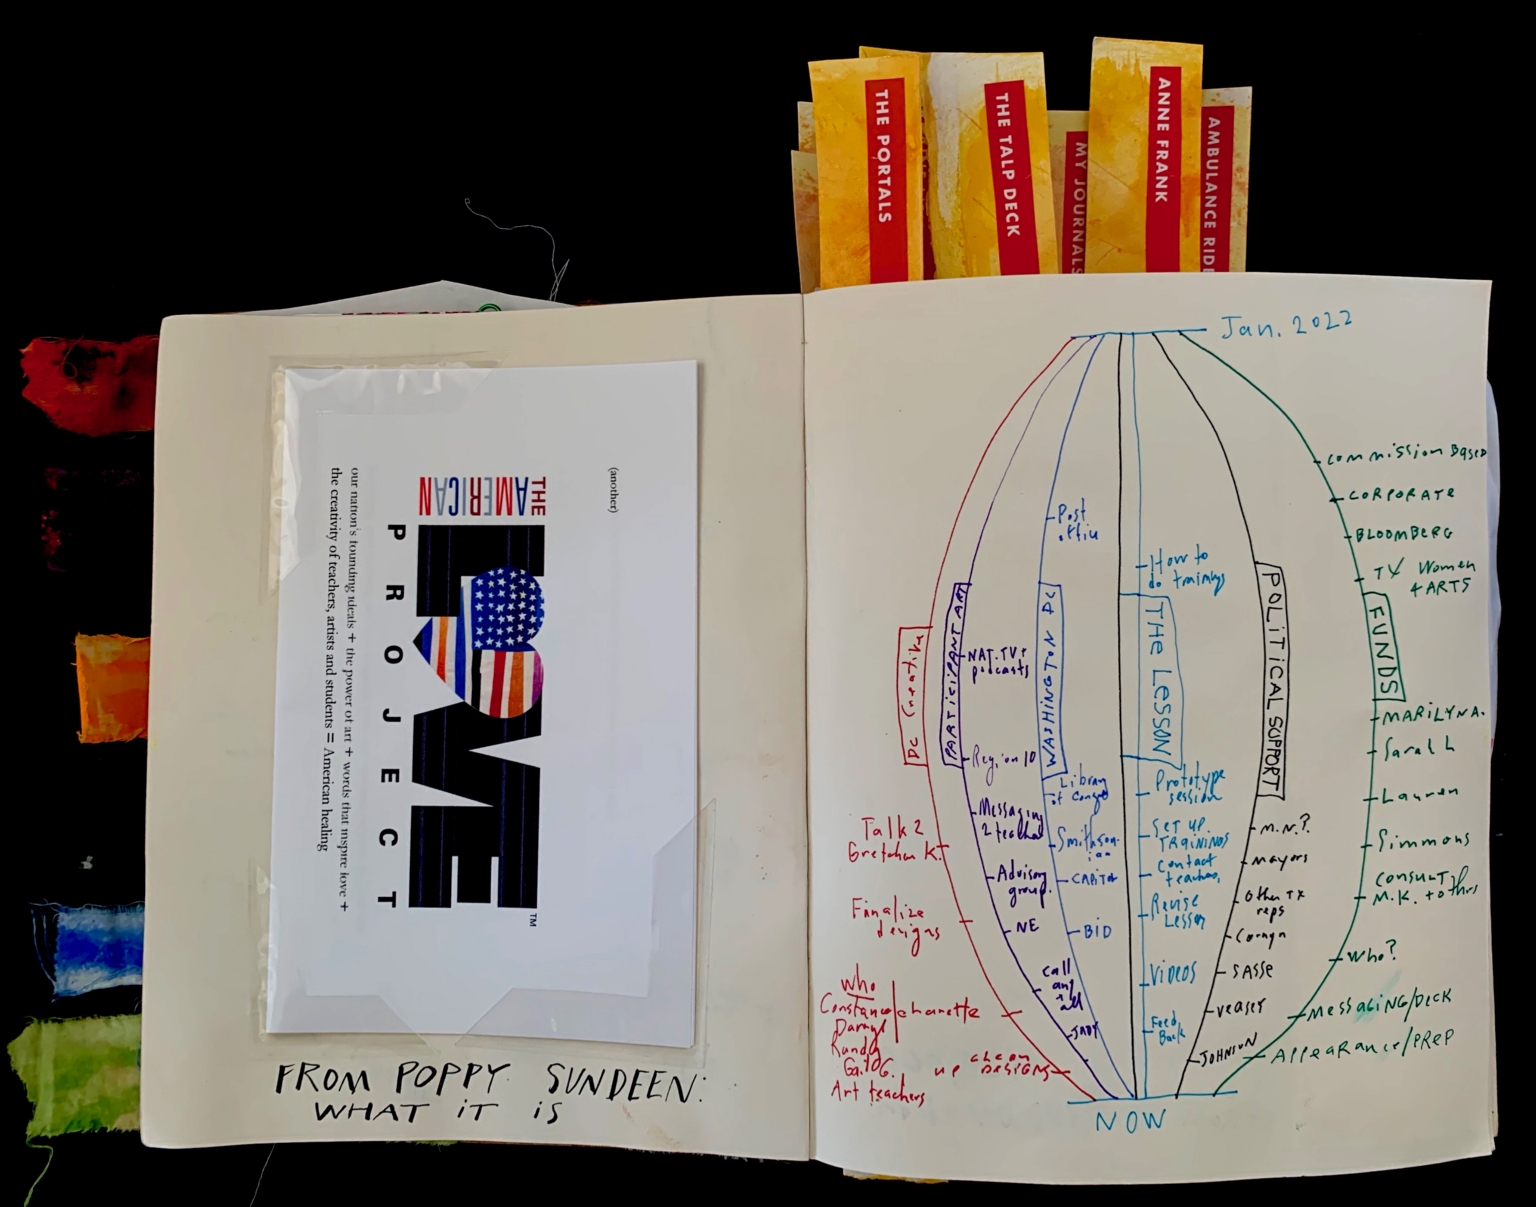 THE PORTALS
THE TALP DECK
MY JOURNALS
ANNE FRANK
AMBULANCE RIDE
(another)
THE
AMERICAN
LOVE
™
PROJECT
our nation's founding ideals + the power of art + words that inspire love +
the creativity of teachers, artists and students = American healing
FROM POPPY SUNDEEN:
WHAT iT iS
Jan. 2022
DC Creative
Talk 2
Gretchen K.
Finalize
designs
Who
Constance
Darryl
Randy
Gail G.
Art teachers
charrette
clean
up DESIGNS
PARTICIPANT ART
NAT. TV +
podcasts
Region 10
Messaging
2 teachers
Advisory
group
NE
call
any +
all
JADY
WASHINGTON DC
Post
office
Library
of Congress
Smithson-
ian
CAPITOL
BID
THE LESSON
How to
do trainings
Prototype
session
SET UP
TRAININGS
Contact
teachers
Revise
Lesson
VIDEOS
Feed
Back
POLITICAL SUPPORT
M.N.?
Mayors
Other TX
reps
Cornyn
SASSE
VEASEY
JOHNSON
FUNDS
Commission Based
CORPORATE
BLOOMBERG
TX Women
4 ARTS
MARILYN A.
Sarah L
Lauren
Simmons
CONSULT
M.K. + others
Who?
MESSAGING/DECK
APPEARANCE/PREP
NOW